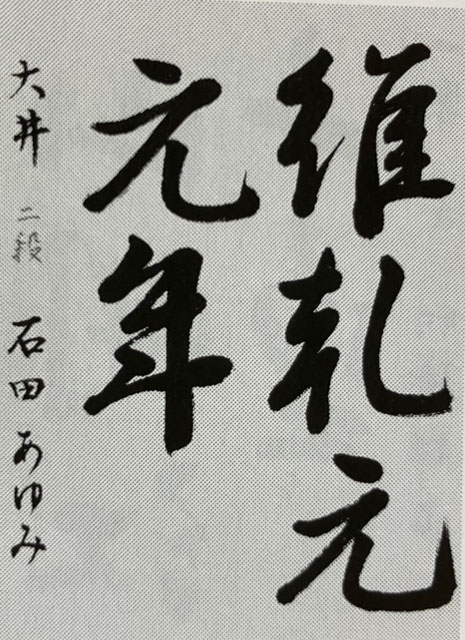 維乹元
元年
大井 二段 石田 あゆみ